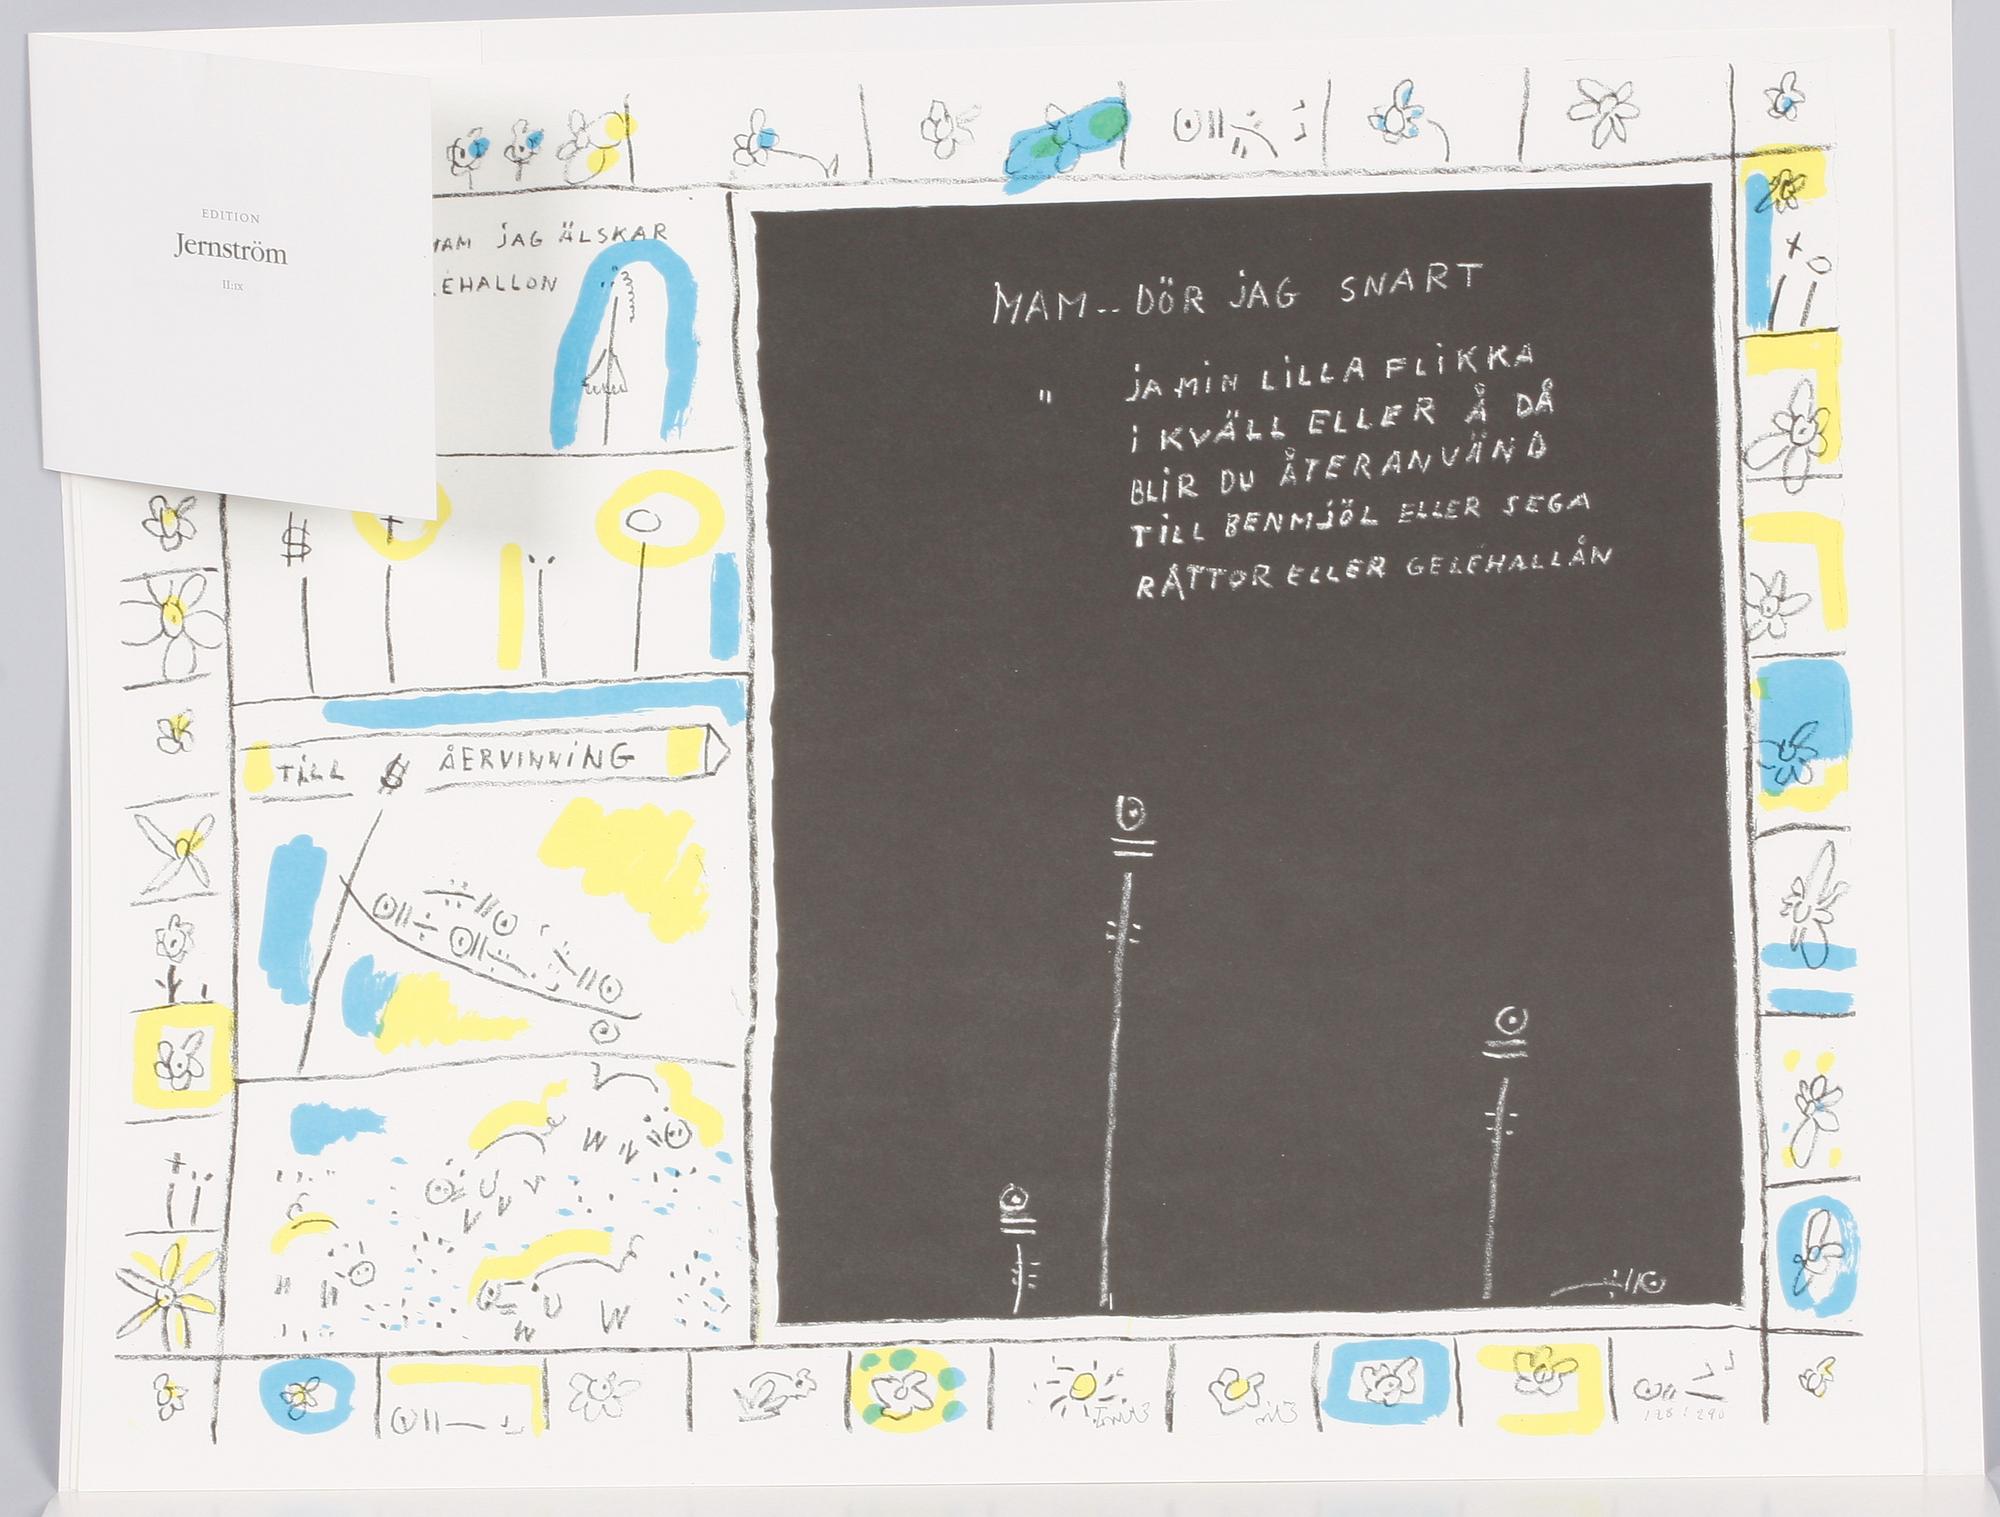 EDITION
Jernström
II:IX
MAM JAG ÄLSKAR
LÉHALLON
MAM.. DÖR JAG SNART
" JA MIN LILLA FLIKKA
I KVÄLL ELLER Å DÅ
BLIR DU ÅTERANVÄND
TILL BENMJÖL ELLER SEGA
RÅTTOR ELLER GELÉHALLÅN
$
TILL $ ÅERVINNING
128/290